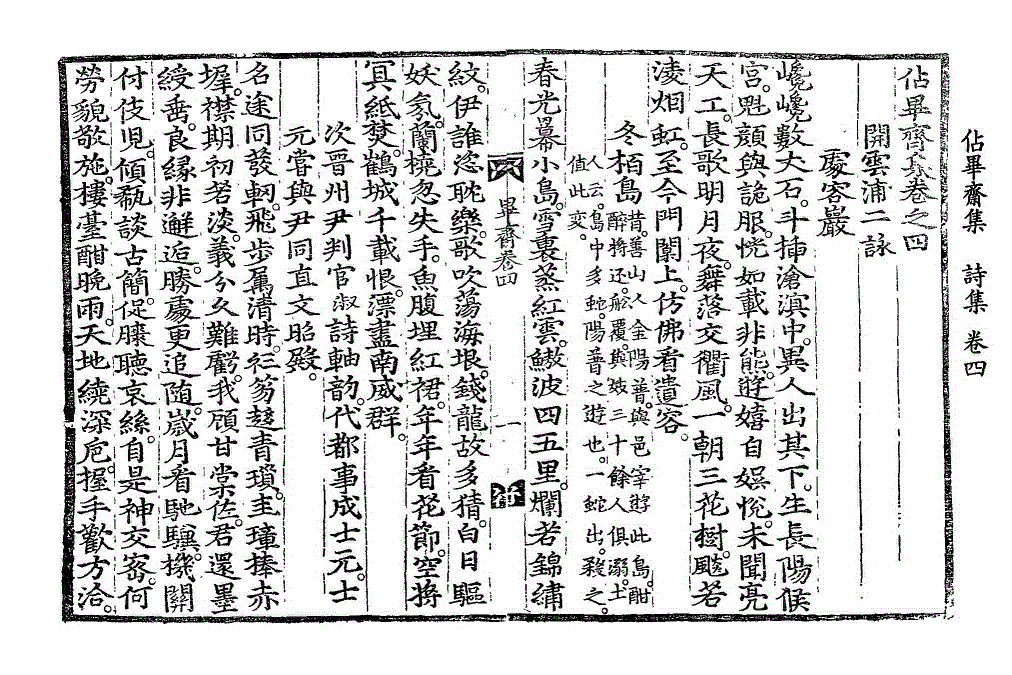 佔畢齋集　詩集　卷四
佔畢齋集卷之四
開雲浦二詠
處容巖
巉巉數大石。斗揷滄溟中。異人出其下。生長陽侯
宮。魁顔與詭服。恍如載非熊。遊嬉自娛悅。未聞亮
天工。長歌明月夜。舞落交衢風。一朝三花樹。飈若
淩烟虹。至今門闑上。仿佛看遺容。
冬栢島
昔。善山人金陽普與邑宰遊此島。酣
醉將还。舩覆。與妓三十餘人俱溺。土
人云。島中多蛇。陽普之遊也。一蛇出。殺之。
値此変。
春光羃小島。雪裏蒸紅雲。鰲波四五里。爛若錦繡
畢齋卷四　一
紋。伊誰恣耽樂。歌吹蕩海垠。錢龍故多猜。白日驅
妖氛。蘭橈忽失手。魚腹埋紅裙。年年看花節。空將
冥紙焚。鶴城千載恨。漂盡南威群。
次晋州尹判官淑詩軸韵。代都事成士元。士
元嘗與尹同直文昭殿。
名途同發軔。飛步屬淸時。衫笏趍青瑣。圭璋捧赤
墀。襟期初若淡。義分久難虧。我頋甘棠佐。君還墨
綬垂。良緣非邂逅。勝處更追随。歲月看馳驥。機關
付伎兒。傾欹談古簡。促膝聽哀絲。自是神交密。何
勞貌敬施。樓臺酣晚雨。天地繞深巵。握手歡方洽。